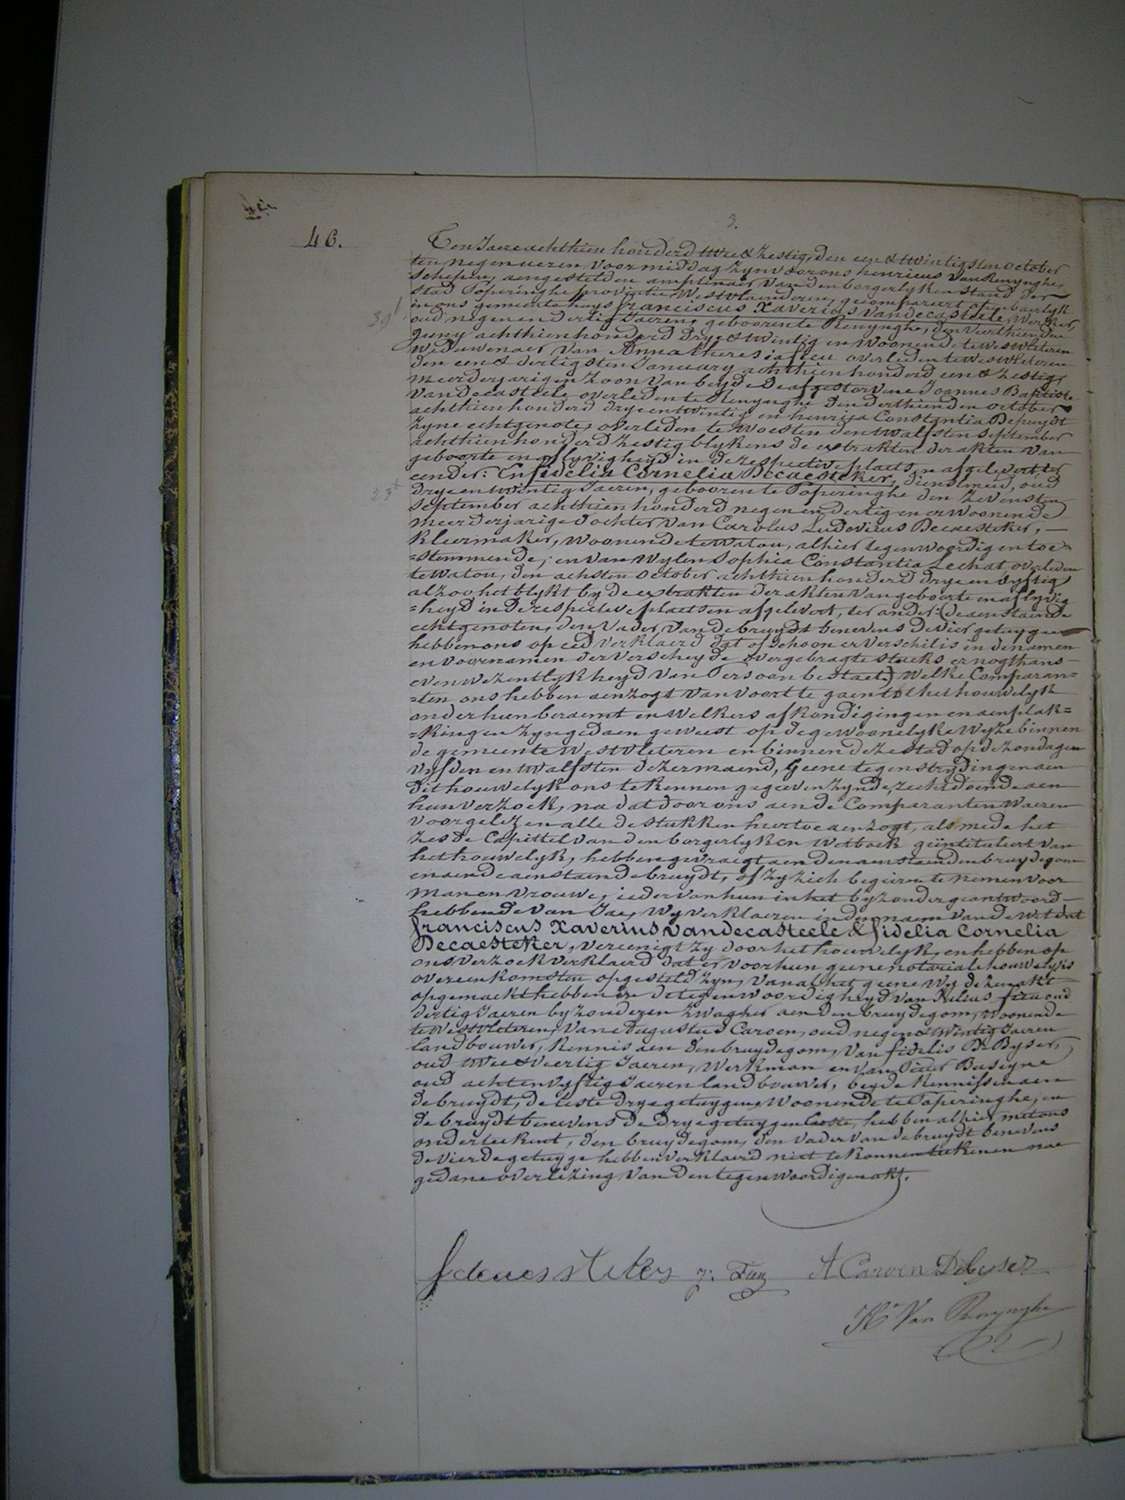 3.
46.
Ten Jaere achthien honderd twee & zestig, den een & twintigsten october
ten negen ueren voormiddag zyn voor ons henricus Van Renynghe,
schepen, aengestelden amptenaer van den borgerlyken stand der
stad Poperinghe provintie Westvlaenderen, gecompareert openbaerlyk
in ons gemeentehuys franciscus Xaverius Vandecasteele, Werkman
39 J
oud negen en dertig Jaeren, geboren te Renynghe, den veerthienden
achthien honderd drye & twintig en Woonende te Westvleteren
Weduwenaer van Anna theresia feu overleden te Westvleteren
den een & dertigsten January achthien honderd een & zestig
meerderjarigen zoon van beyde de afgestorvene Joannes Baptiste
Vandecasteele overleden te Renynghe den derthienden october
achthien honderd drye en twintig en henrica Constantia Depuydt
zyne echtgenote, overleden te Woesten den twalfsten september
achthien honderd zestig blykens de extrakten der akten van
geboorte en aflyvigheyd in de respective plaetsen afgelevert ter
eender: En fidelia Cornelia Decaesteker, dienstmeid, oud
23
drye en twintig Jaeren, geboren te Poperinghe den zevensten
september achthien honderd negen en dertig en er Woonende
meerderjarige dochter van Carolus Ludovicus Decaesteker, —
kleermaker, Woonende te Watou, alhier tegenwoordig en toe=
=stemmende; en van Wylen Sophia Constantia Lechat overleden
te Watou, den achsten october achthien honderd drye en vyftig
alzoo het blykt by de extrakten der akten van geboorte en aflyvig
=heyd in de respective plaetsen afgelevert, ter ander: de aenstaende
echtgenoten, den Vader van de bruydt benevens de vier getuygen
hebben ons op eed verklaerd dat ofschoon er verschil is in de namen
en voornamen der verscheyde overgebragte stucks er nogthans
even wezentlyk heyd van Persoon bestaet; Welke Comparan=
=ten ons hebben aenzogt van voort te gaen tot het houwelyk
onder hun beraemt en Welkers afkondigingen en aenplak=
=kingen zyn gedaen geweest op de gewoonelyke Wyze binnen
de gemeente Westvleteren en binnen deze stad op de zondagen
vyfden en twalfsten dezer maend, Geene tegenstrydingen aen
dit houwelyk ons te kennen gegeven zynde, recht doende aen
hun verzoek, na dat door ons aen de Comparanten Waeren
voorgelezen alle de stukken hiertoe aenzogt, als mede het
zesde Capittel van den borgerlyken Wetboek geïntituleert van
het houwelyk, hebben gevraegt aen den aenstaenden bruydegom
en aen de aenstaende bruydt, of zy zich begeiren te nemen voor
man en vrouwe, ieder van hun in het byzonder geantwoord
hebbende van Jae, Wy verklaeren in den naem van de Wet dat
franciscus Xaverius Vandecasteele & fidelia Cornelia
Decaesteker, vereenigt zy door het houwelyk, en hebben op
ons verzoek verklaerd dat er voor hun geene notariale houwelyks
overeenkomsten opgesteld zyn, van al het geene Wy deze akt
opgemaekt hebben in de tegenwoordigheyd van Kelius feu oud
dertig Jaeren byzonderen zwager aen den bruydegom, Woonende
te Westvleteren, van Augustus Caroen, oud negen & twintig Jaeren
landbouwer, kennis aen den bruydegom, van fidelis De Byser,
oud twee & veertig Jaeren, Werkman en van Pieter Busigne
oud acht en vyftig Jaeren landbouwer, beyde kennissen aen
de bruydt, de leste drye getuygen Woonende te Poperinghe, en
de bruydt benevens de drye getuygen Eerste, hebben alhier met ons
onderteekent, den bruydegom, den vader van de bruydt benevens
de vierde getuyge hebben verklaerd niet te konnen teekenen nae
gedane overlezing van den tegenwoordigen akt.
f decaes teker J: Feu A Caroen Debyser
He Van Renynghe